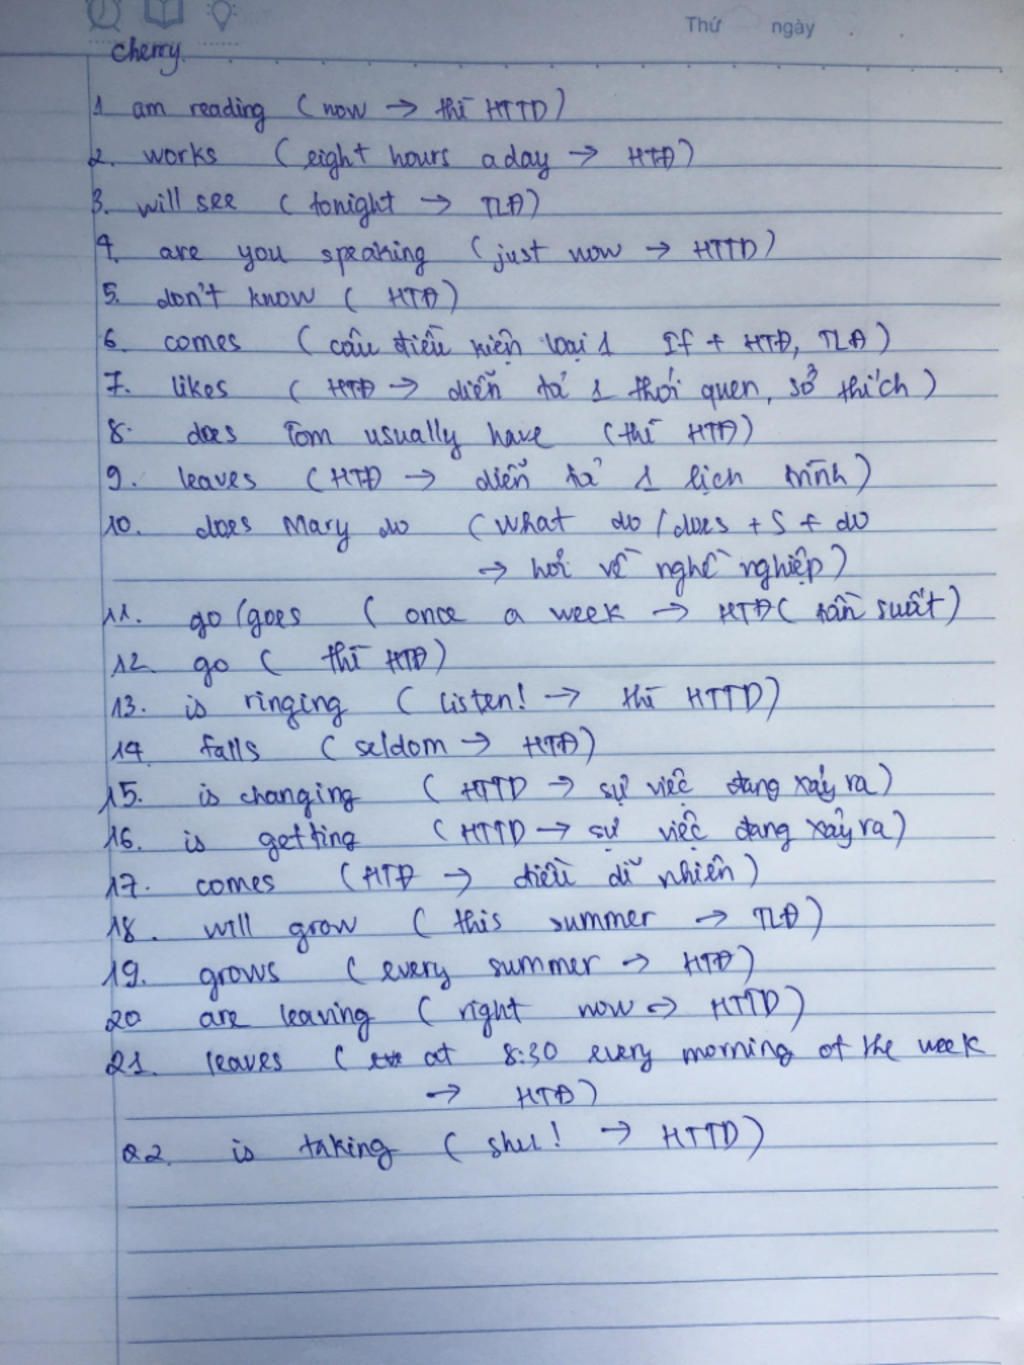 Thứ ngày
cherry
1 am reading ( now → thì HTTD )
2. works ( eight hours a day → HTĐ )
3. will see ( tonight → TLĐ )
4. are you speaking ( just now → HTTD )
5. don't know ( HTĐ )
6. comes ( câu điều kiện loại 1 If + HTĐ, TLĐ )
7. likes ( HTĐ → diễn tả 1 thói quen, sở thích )
8. does Tom usually have ( thì HTĐ )
9. leaves ( HTĐ → diễn tả 1 lịch trình )
10. does Mary do ( What do / does + S + do
→ hỏi về nghề nghiệp )
11. go / goes ( once a week → HTĐ ( tần suất )
12. go ( thì HTĐ )
13. is ringing ( Listen! → thì HTTD )
14 falls ( seldom → HTĐ )
15. is changing ( HTTD → sự việc đang xảy ra )
16. is getting ( HTTD → sự việc đang xảy ra )
17. comes ( HTĐ → điều dĩ nhiên )
18. will grow ( this summer → TLĐ )
19. grows ( every summer → HTĐ )
20 are leaving ( right now → HTTD )
21. leaves ( at 8:30 every morning of the week
→ HTĐ )
22. is taking ( shu! → HTTD )